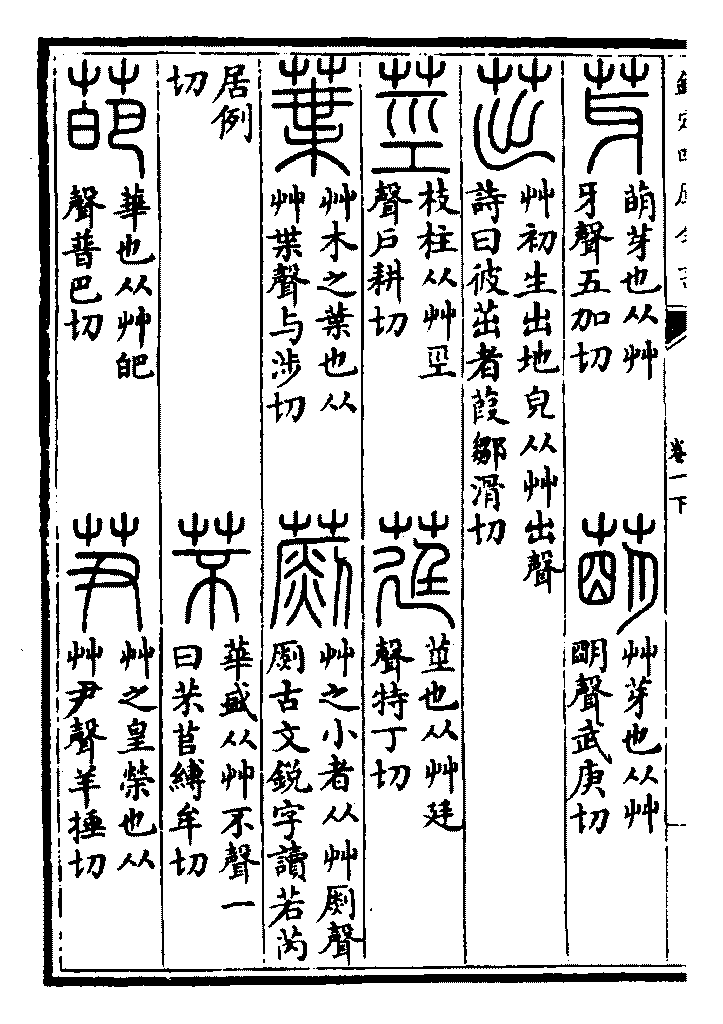 欽定四庫全書
卷一下
芽
萌芽也从艸
牙聲五加切
萌
艸芽也从艸
朙聲武庚切
茁
艸初生出地皃从艸出聲
詩曰彼茁者葭鄒滑切
莖
枝柱从艸巠
聲戶耕切
莛
莖也从艸廷
聲特丁切
葉
艸木之葉也从
艸枼聲与涉切
艸之小者从艸𠟭聲
𠟭古文鋭字讀若芮
居例
切
芣
華盛从艸不聲一
曰芣苢縛牟切
葩
華也从艸皅
聲普巴切
芛
艸之皇榮也从
艸尹聲羊捶切